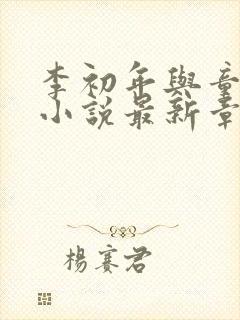 李初年與童
小說最新章
楊賽君